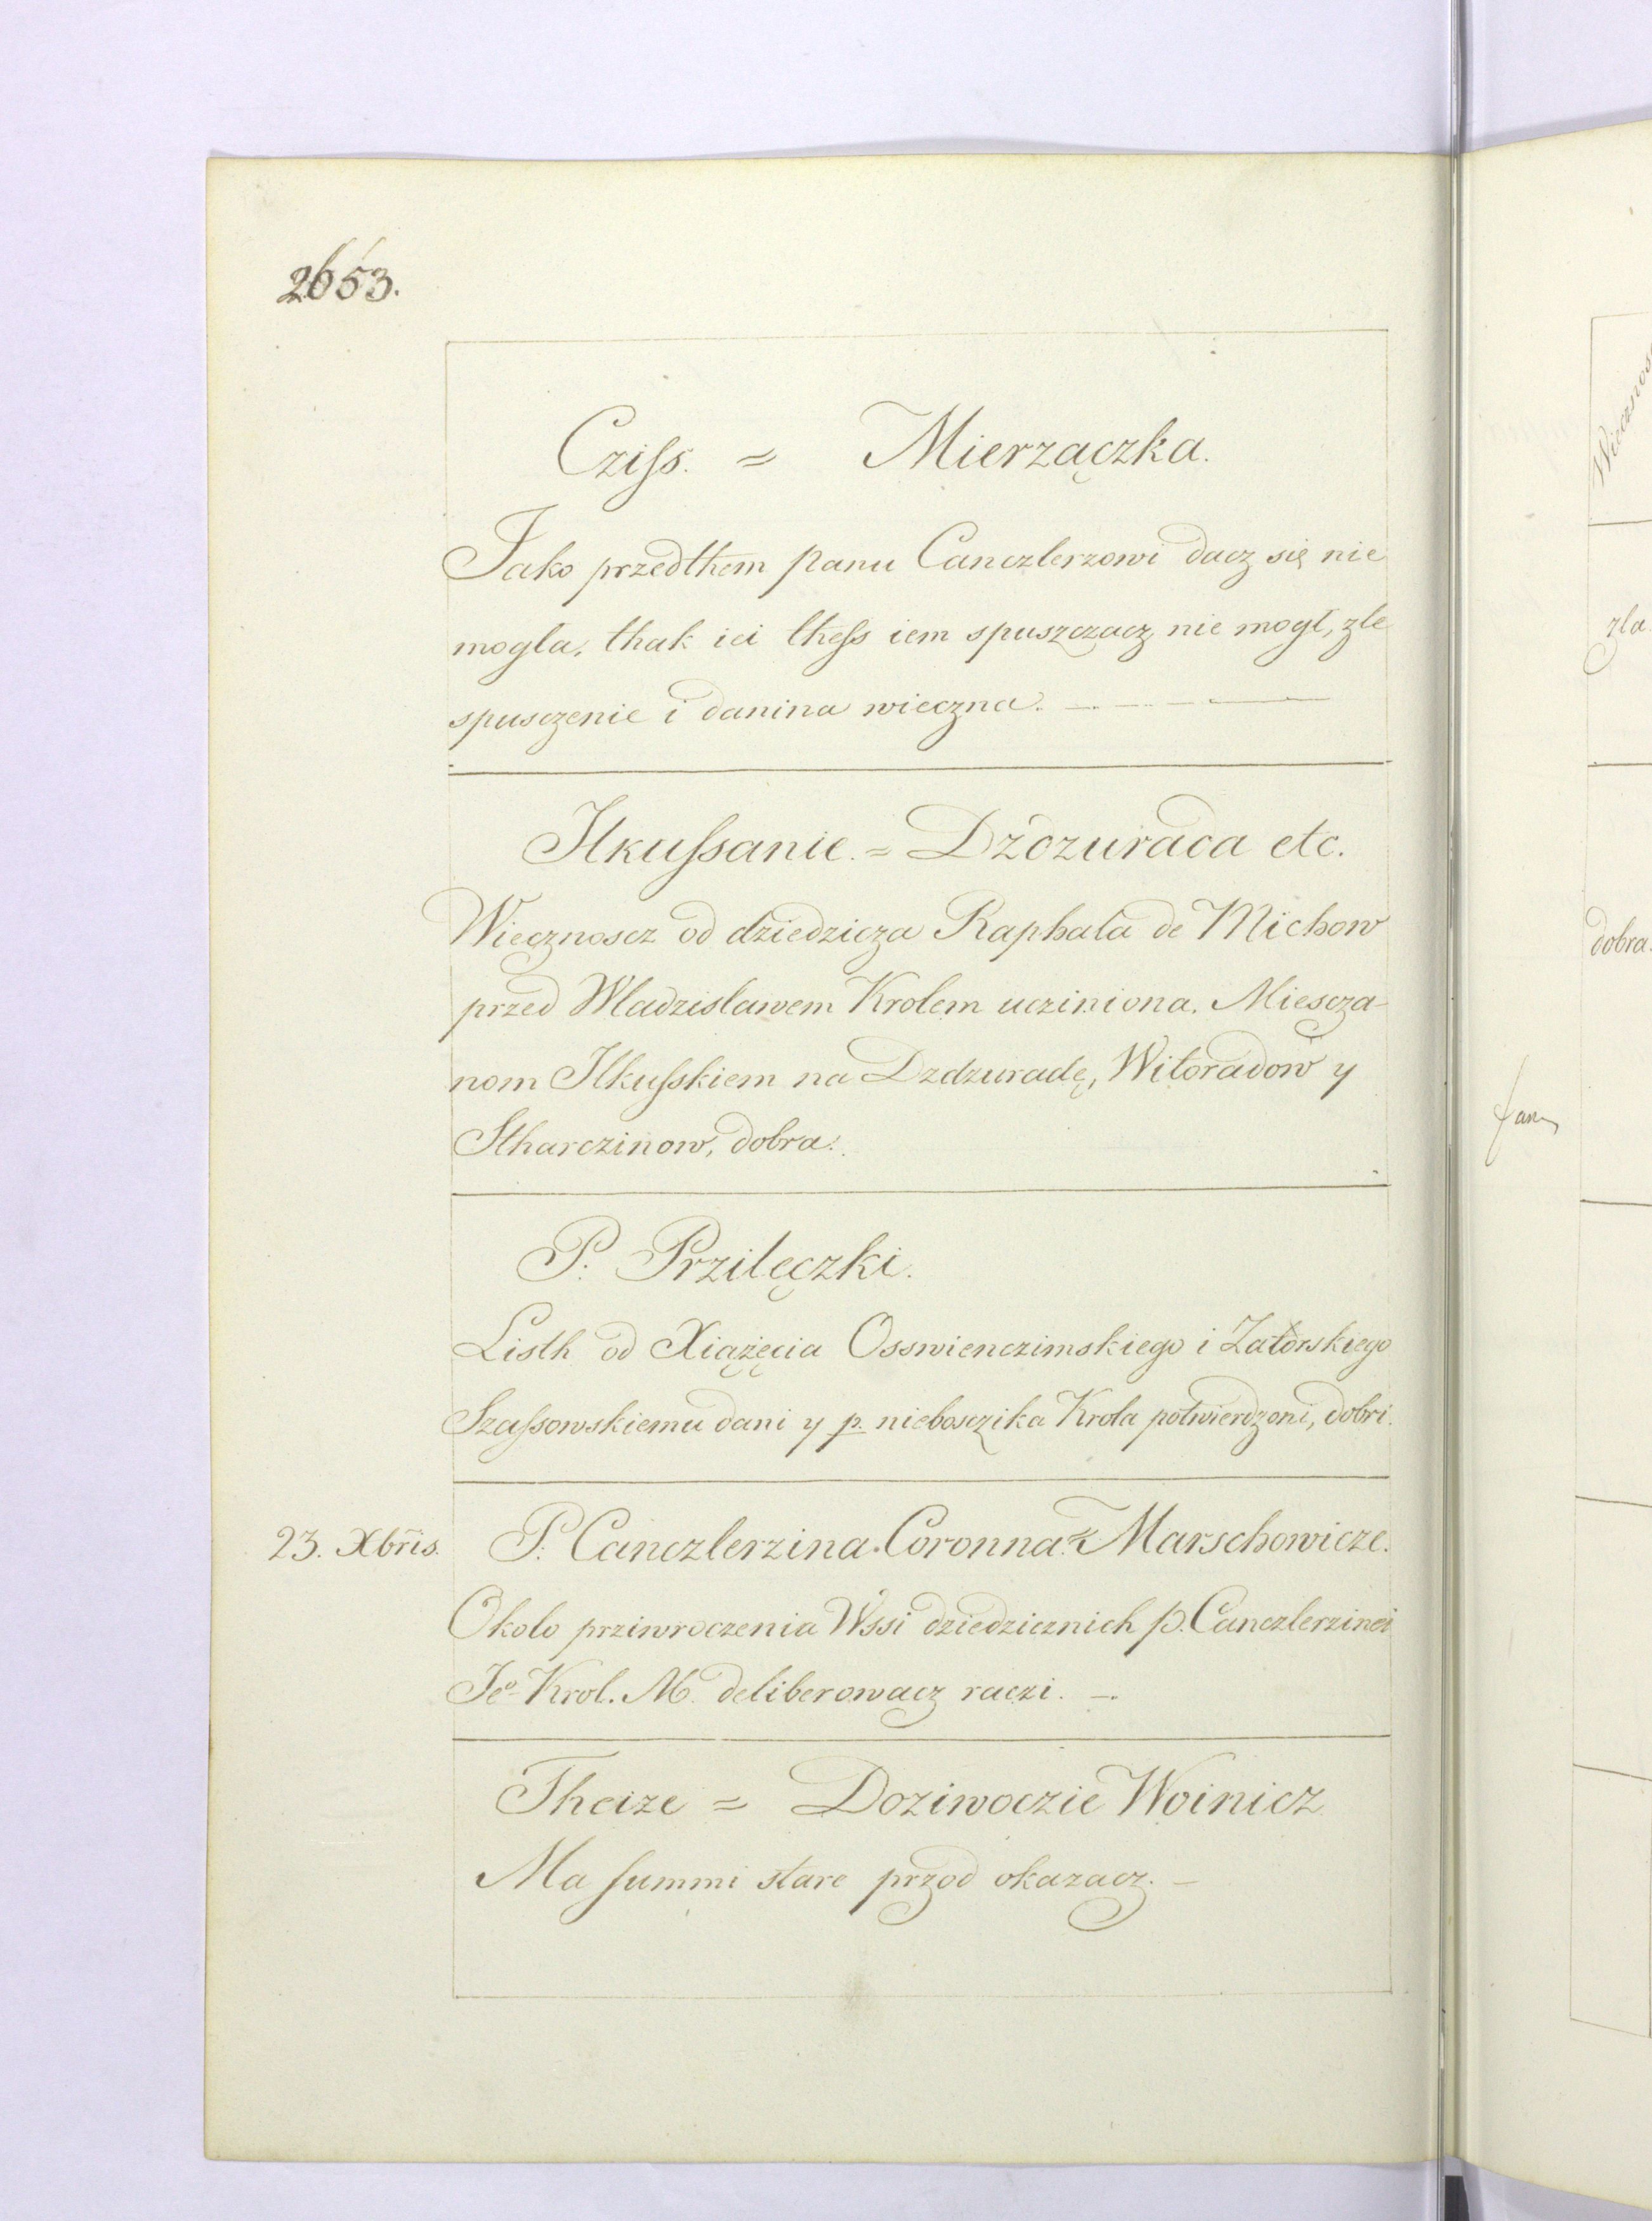 2653.
Cziss. = Mierzączka.
Jako przedthem panu Canczlerzowi dacz się nie
mogla, thak iei thess iem spuszczacz nie mogł, zle
spusczenie i danina wieczna.
Ilkussanie. = Dzdzurada etc.
Wiecznoscz od dziedzicza Raphala de Michow
przed Wladzislawem Krolem ucziniona. Miescza-
nom Ilkusskiem na Dzdzuradę, Witoradow y
Stharczinow, dobra.
P. Przilęczki.
Listh od Xiążęcia Osswienczimskiego i Zatorskiego
Szassowskiemu dani y p. niebosczika Krola potwierdzoni, dobri.
23. Xbris. P. Canczlerzina Coronna = Marschowicze.
Okolo prziwroczenia Wssi dziedzicznich p. Canczlerzinei
Jeo Krol. M. deliberowacz raczi. —.
Theize = Doziwoczie Woinicz
Ma summi stare przod okazacz. —
zla
dobra.